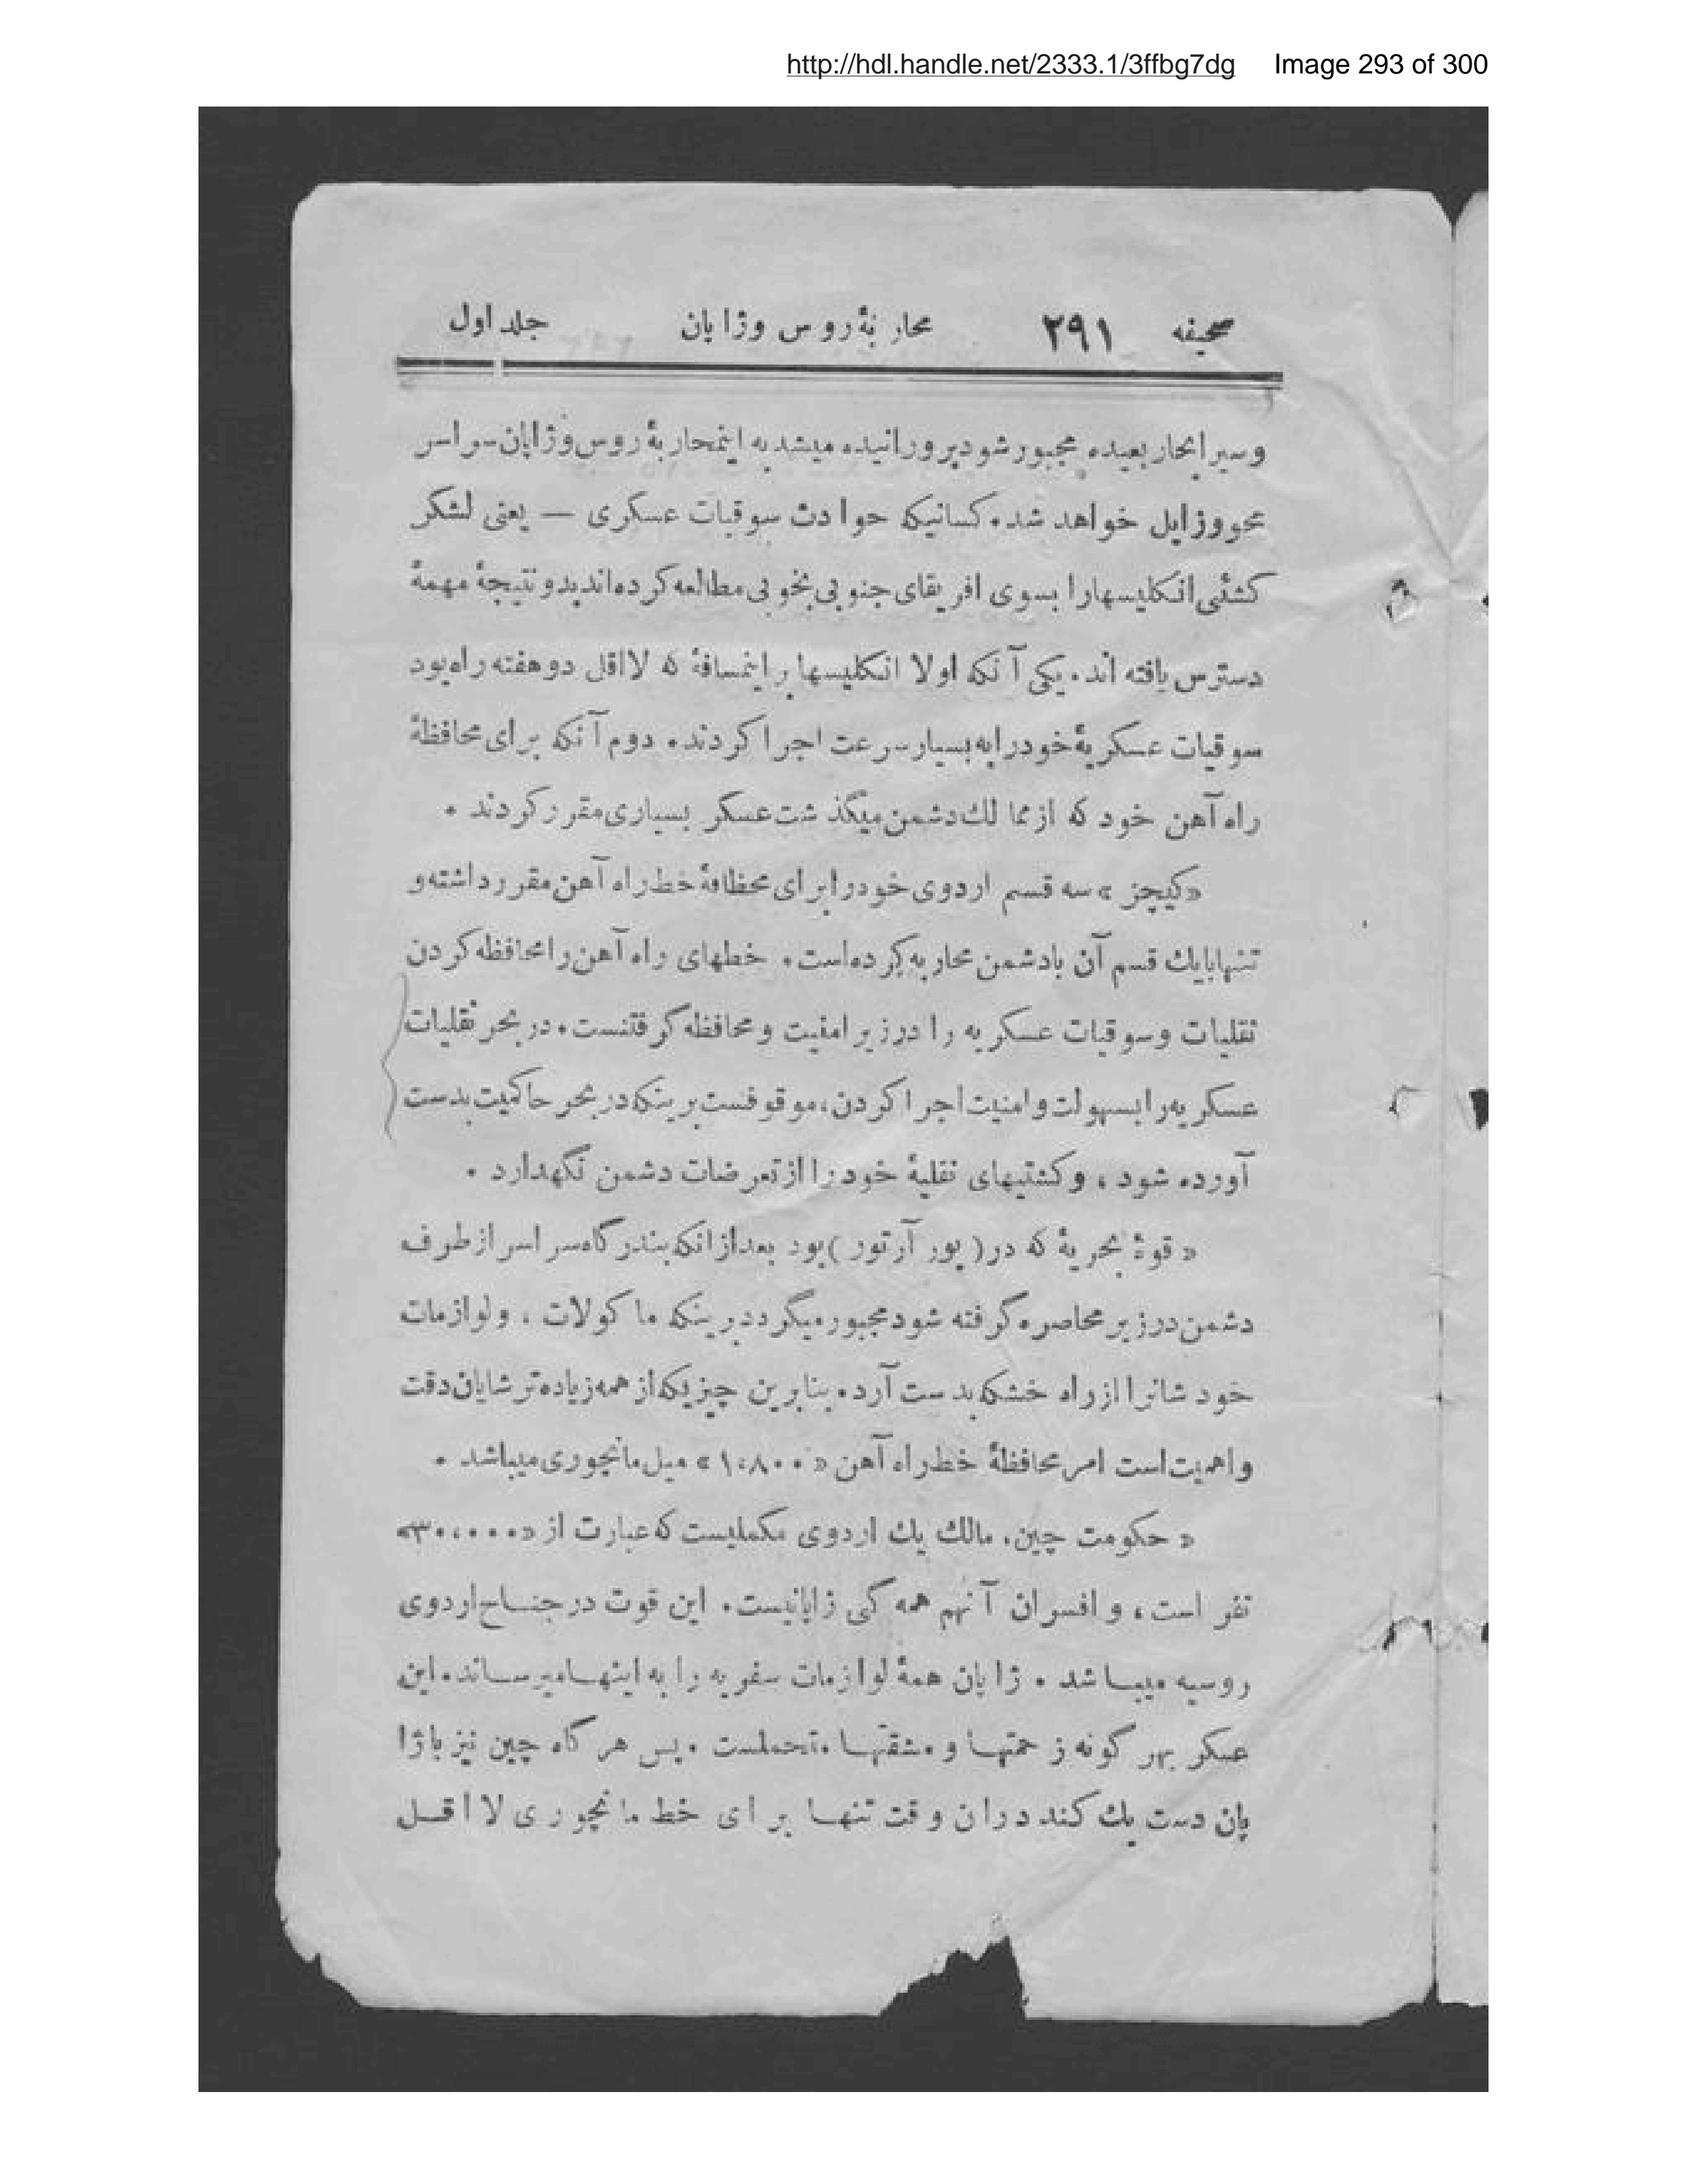 http://hdl.handle.net/2333.1/3ffbg7dg Image 293 of 300
صحیفه ۲۹۱ محاربۀ روس وژاپان جلد اول
وسیر ابحار بعیده مجبور شود پرورانیده میشد به اینمحاربۀ روس وژاپان سراسر
محووزایل خواهد شد. کسانیکه حوادث سوقیات عسکری — یعنی لشکر
کشئی انکلیسهارا بسوی افریقای جنوبی بخوبی مطالعه کرده اند بدو نتیجۀ مهمۀ
دسترس یافته اند. یکی آنکه اولا انکلیسها براینمسافۀ که لااقل دو هفته راه بود
سوقیات عسکریۀ خودرا به بسیار سرعت اجرا کردند. دوم آنکه برای محافظۀ
راه آهن خود که از ممالك دشمن میگذشت عسکر بسیاری مقرر کردند .
«کیچنر» سه قسم اردوی خودرا برای محظافۀ خط راه آهن مقرر داشته و
تنهابایك قسم آن بادشمن محاربه کرده است. خطهای راه آهن را محافظه کردن
نقلیات وسوقیات عسکریه را درزیر امنیت و محافظه گرفتنست. در بحر نقلیات
عسکریه را بسهولت وامنیت اجرا کردن، موقوفست برینکه در بحر حاکمیت بدست
آورده شود ، وکشتیهای نقلیۀ خود را از تعرضات دشمن نگهدارد .
« قوۀ بحریۀ که در (پور آرتور) بود بعد از انکه بندرگاه سراسر از طرف
دشمن درزیر محاصره گرفته شود مجبور میگردد برینکه ماکولات ، ولوازمات
خود شانرا از راه خشکه بدست آرد. بنابرین چیزیکه از همه زیاده تر شایان دقت
واهمیت است امر محافظۀ خط راه آهن «۱،۸۰۰» میل مانچوری میباشد .
« حکومت چین، مالك یك اردوی مکملیست که عبارت از «۳۰،۰۰۰»
نفر است، و افسران آنهم همه گی ژاپانیست. این قوت در جناح اردوی
روسیه میباشد . ژاپان همۀ لوازمات سفریه را به اینهامیرساند. این
عسکر بهر گونه زحمتها و مشقتها متحملست . پس هر گاه چین نیز باژا
پان دست یك کند دران وقت تنها برای خط مانچوری لااقل